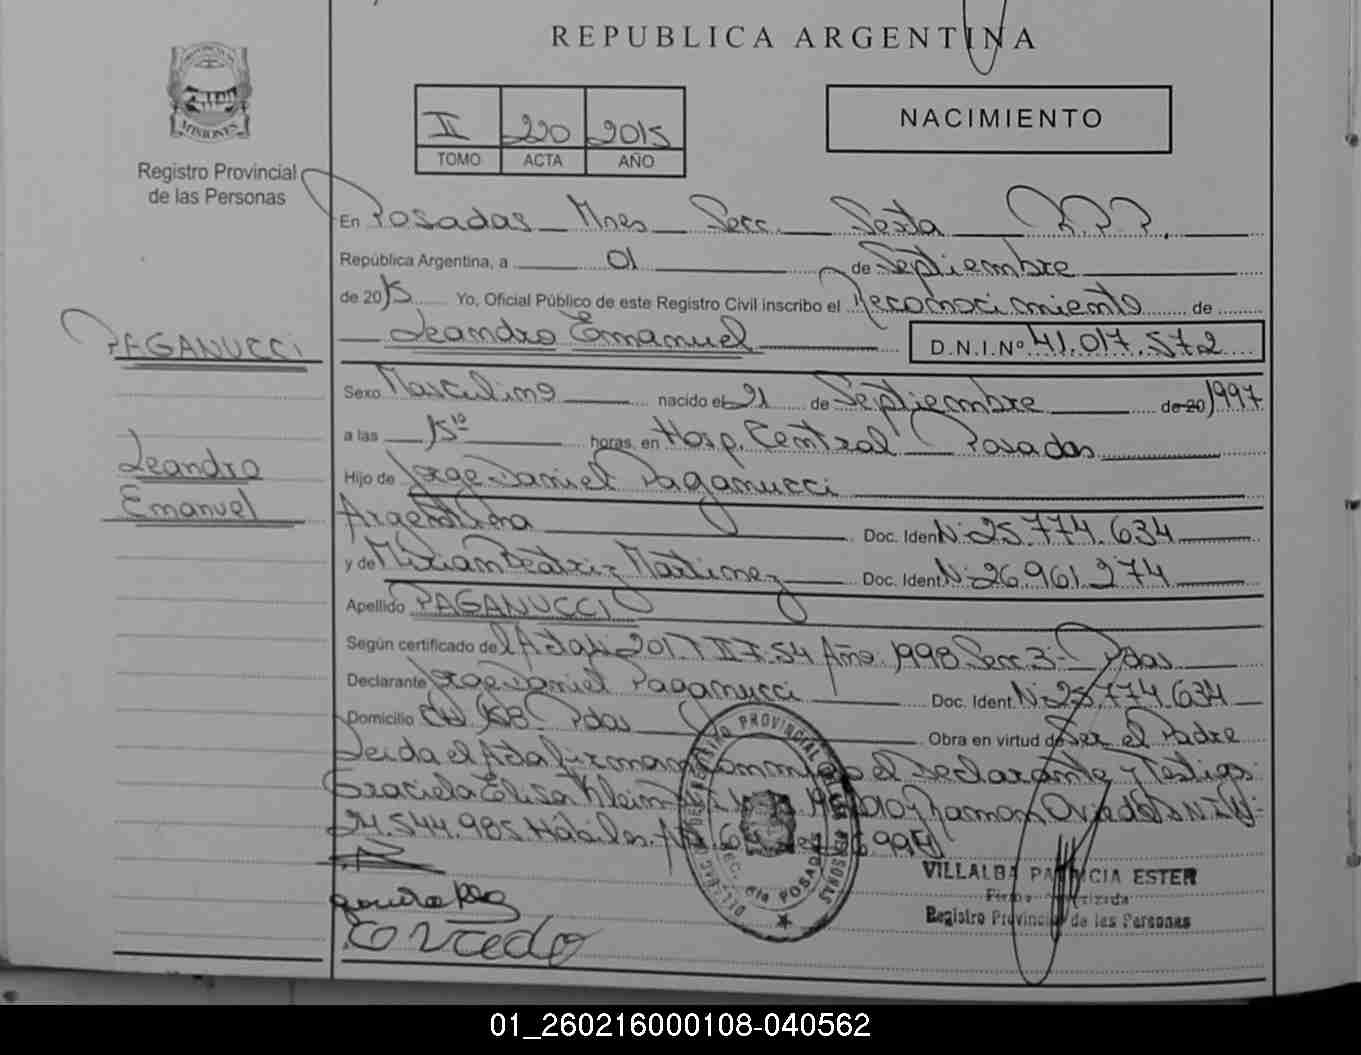 REPUBLICA ARGENTINA
PROVINCIA DE
MISIONES
Registro Provincial
de las Personas
II 220 2015
TOMO ACTA AÑO
NACIMIENTO
En Posadas Mnes Secc. Sexta R.P.P.
República Argentina, a 01 de Septiembre
de 2015 Yo, Oficial Público de este Registro Civil inscribo el Reconocimiento de
Leandro Emanuel D.N.I.Nº 41.017.572
PAGANUCCI
Leandro
Emanuel
Sexo Masculino nacido el 21 de Septiembre de 20 1997
a las 15 10 horas, en Hosp. Central Posadas
Hijo de Jorge Daniel Paganucci
Argentina Doc. Ident. Nº 25.774.634
y de Mirian Beatriz Martinez Doc. Ident. Nº 26.961.274
Apellido PAGANUCCI
Según certificado del Acta Nº 2017 TII F.54 Año 1998 Secc 3º Pdas
Declarante Jorge Daniel Paganucci Doc. Ident. Nº 25.774.634
Domicilio CH 168 Pdas Obra en virtud de Ser el Padre
Leida el Acta firman conmigo el Declarante y Testigos
Graciela Elisa Klein Ramon Oviedo D.N.I Nº
21.544.985 Hábiles
Oviedo
DELEGAC REGISTRO PROVINCIAL DE LAS PERSONAS
SEC. 6ta POSADAS
VILLALBA PATRICIA ESTER
Firma Autorizada
Registro Provincial de las Personas
01_260216000108-040562